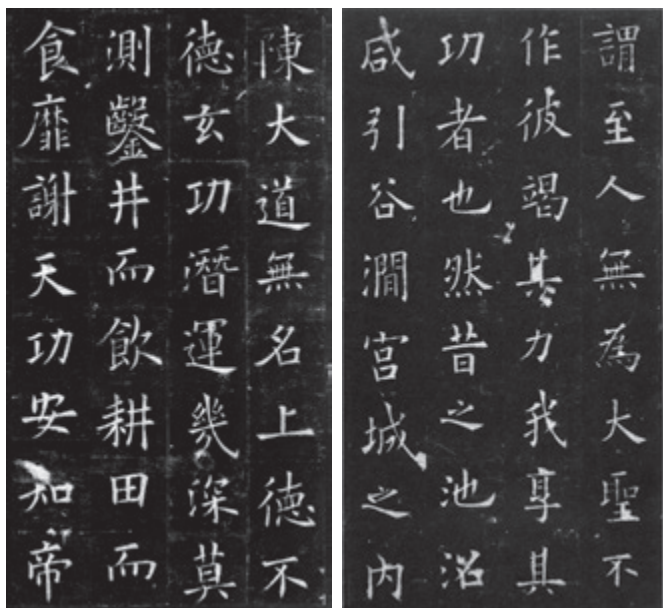 謂至人無為大聖不
作彼竭其力我享其
功者也然昔之池沼
咸引谷澗宮城之内
陳大道無名上徳不
徳玄功潛運幾深莫
測鑿井而飲耕田而
食靡謝天功安知帝